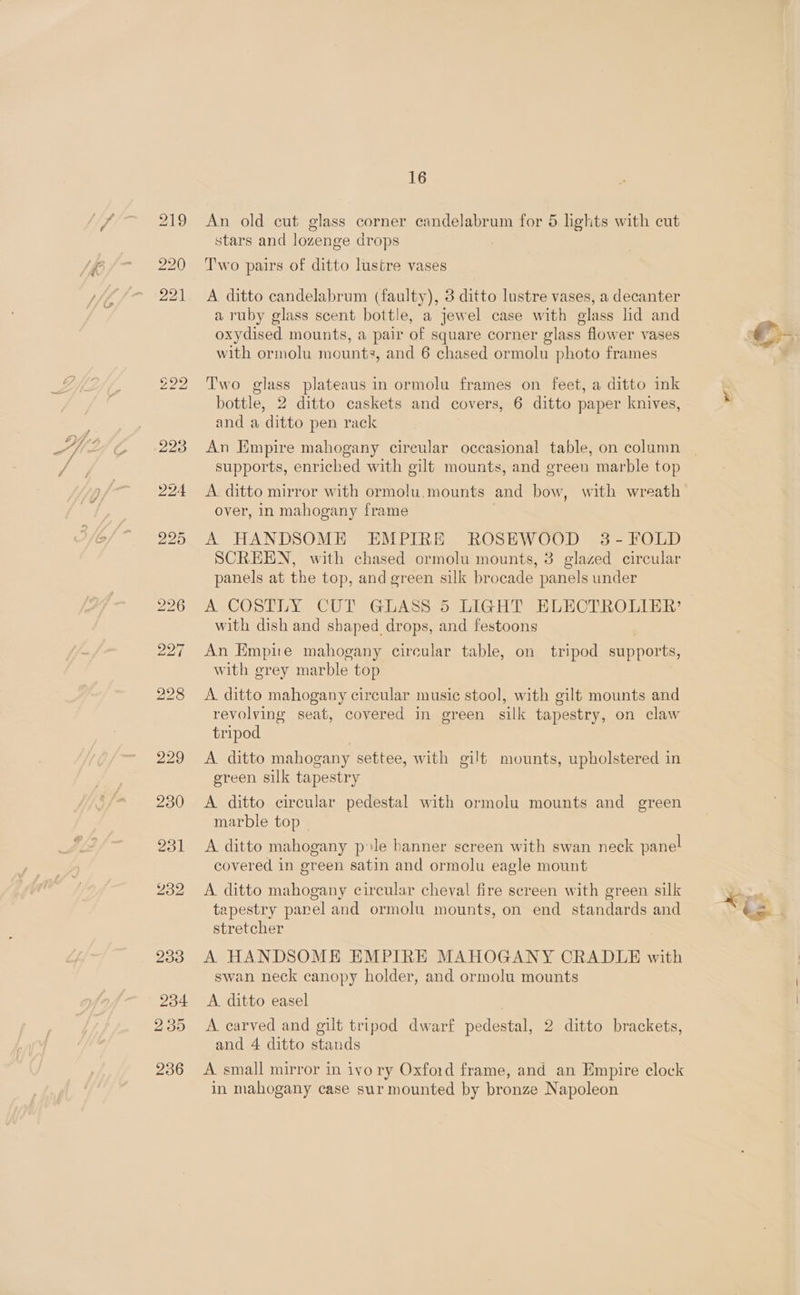 16
219 An old cut glass corner candelabrum for 5 lights with cut
stars and lozenge drops
220 Two pairs of ditto lustre vases
221 A ditto candelabrum (faulty), 3 ditto lustre vases, a decanter
a ruby glass scent bottle, a jewel case with glass lid and
oxydised mounts, a pair of square corner glass flower vases
with ormolu mounts, and 6 chased ormolu photo frames
222 Two glass plateaus in ormolu frames on feet, a ditto ink
bottle, 2 ditto caskets and covers, 6 ditto paper knives,
and a ditto pen rack
223 An Empire mahogany circular occasional table, on column
supports, enriched with gilt mounts, and green marble top
224 A ditto mirror with ormolu mounts and bow, with wreath
over, in mahogany frame
225 A HANDSOME EMPIRE ROSEWOOD 3-FOLD
SCREEN, with chased ormolu mounts, 3 glazed circular
panels at the top, and green silk brocade panels under
226 A COSTLY CUT GLASS 5 LIGHT ELECTROLIER'
with dish and shaped drops, and festoons
227 An Empire mahogany circular table, on tripod supports,
with grey marble top
228 A ditto mahogany circular music stool, with gilt mounts and
revolving seat, covered in green silk tapestry, on claw
tripod
229 A ditto mahogany settee, with gilt mounts, upholstered in
green silk tapestry
230 A ditto circular pedestal with ormolu mounts and green
marble top
231 A ditto mahogany pole banner screen with swan neck panel
covered in green satin and ormolu eagle mount
232 A ditto mahogany circular cheval fire screen with green silk
tapestry panel and ormolu mounts, on end standards and
stretcher
233 A HANDSOME EMPIRE MAHOGANY CRADLE with
swan neck canopy holder, and ormolu mounts
234 A ditto easel
235 A carved and gilt tripod dwarf pedestal, 2 ditto brackets,
and 4 ditto stands
236 A small mirror in ivory Oxford frame, and an Empire clock
in mahogany case surmounted by bronze Napoleon